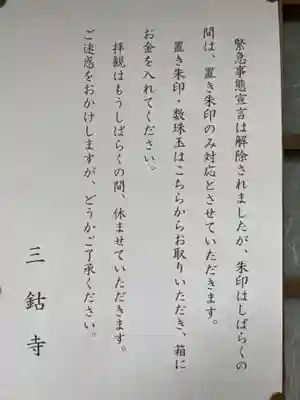 緊急事態宣言は解除されましたが、朱印はしばらくの
間は、置き朱印のみ対応とさせていただきます。
置き朱印・数珠玉はこちらからお取りいただき、箱に
お金を入れてください。
拝観はもうしばらくの間、休ませていただきます。
ご迷惑をおかけしますが、どうかご了承ください。
三鈷寺